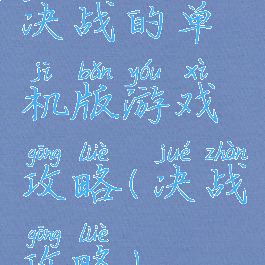 决战的单
jī bǎn yóu xì
机版游戏
gōng lüè jué zhàn
攻略(决战
gōng lüè
攻略)